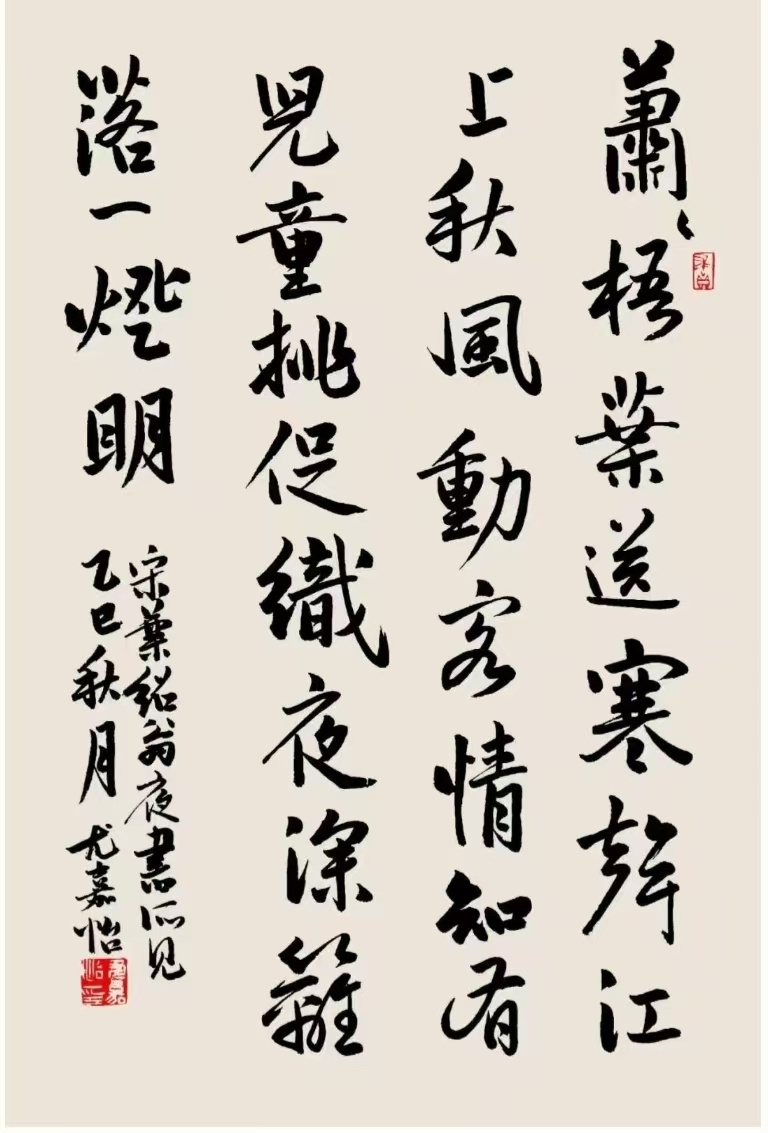 蕭〻梧葉送寒聲江
上秋風動客情知有
兒童挑促織夜深籬
落一燈明
宋葉紹翁夜書所見
乙巳秋月尤嘉怡